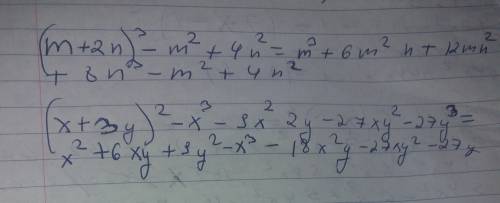 (m+2n)³ - m² + 4n² = m³ + 6m² n + 12mn²
+ 8n³ - m² + 4n²
(x+3y)² - x³ - 9x² 2y - 27xy² - 27y³ =
x² + 6xy + 9y² - x³ - 18x²y - 27xy² - 27y